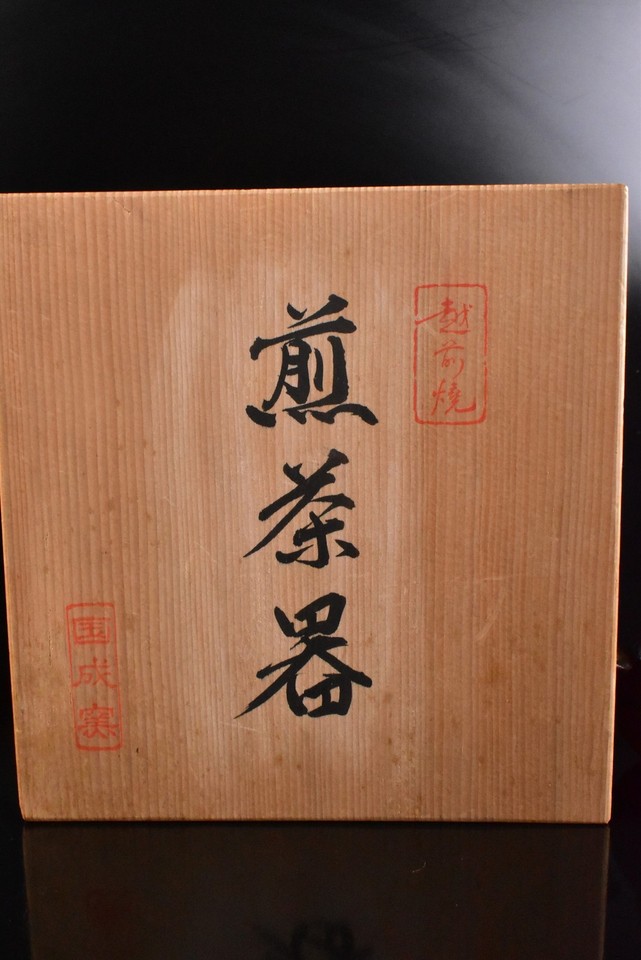 越前焼
煎茶器
国成窯